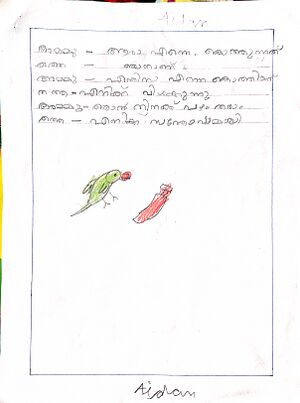 Aidan
അമ്മു - ആരാ എന്നെ കൊത്തുന്നത്
തത്ത - ഞാനാണ്
അമ്മു - എന്തിനാ എന്നെ കൊത്തിയത്
തത്ത - എനിക്ക് വിശക്കുന്നു
അമ്മു - ഞാൻ നിനക്ക് പഴം തരാം
തത്ത - എനിക്ക് സന്തോഷമായി
Aidan